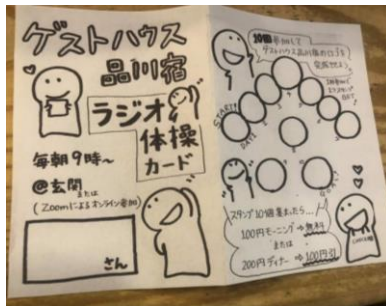 ゲストハウス
品川宿
ラジオ
体操
カード
毎朝9時～
@玄関
または
(Zoomによるオンライン参加)
さん
10回参加して
ゲストハウス品川宿のロゴを
完成させよう
START!
DAY1
スタンプ10個集まったら...
100円モーニング→無料
または
200円ディナー→100円引